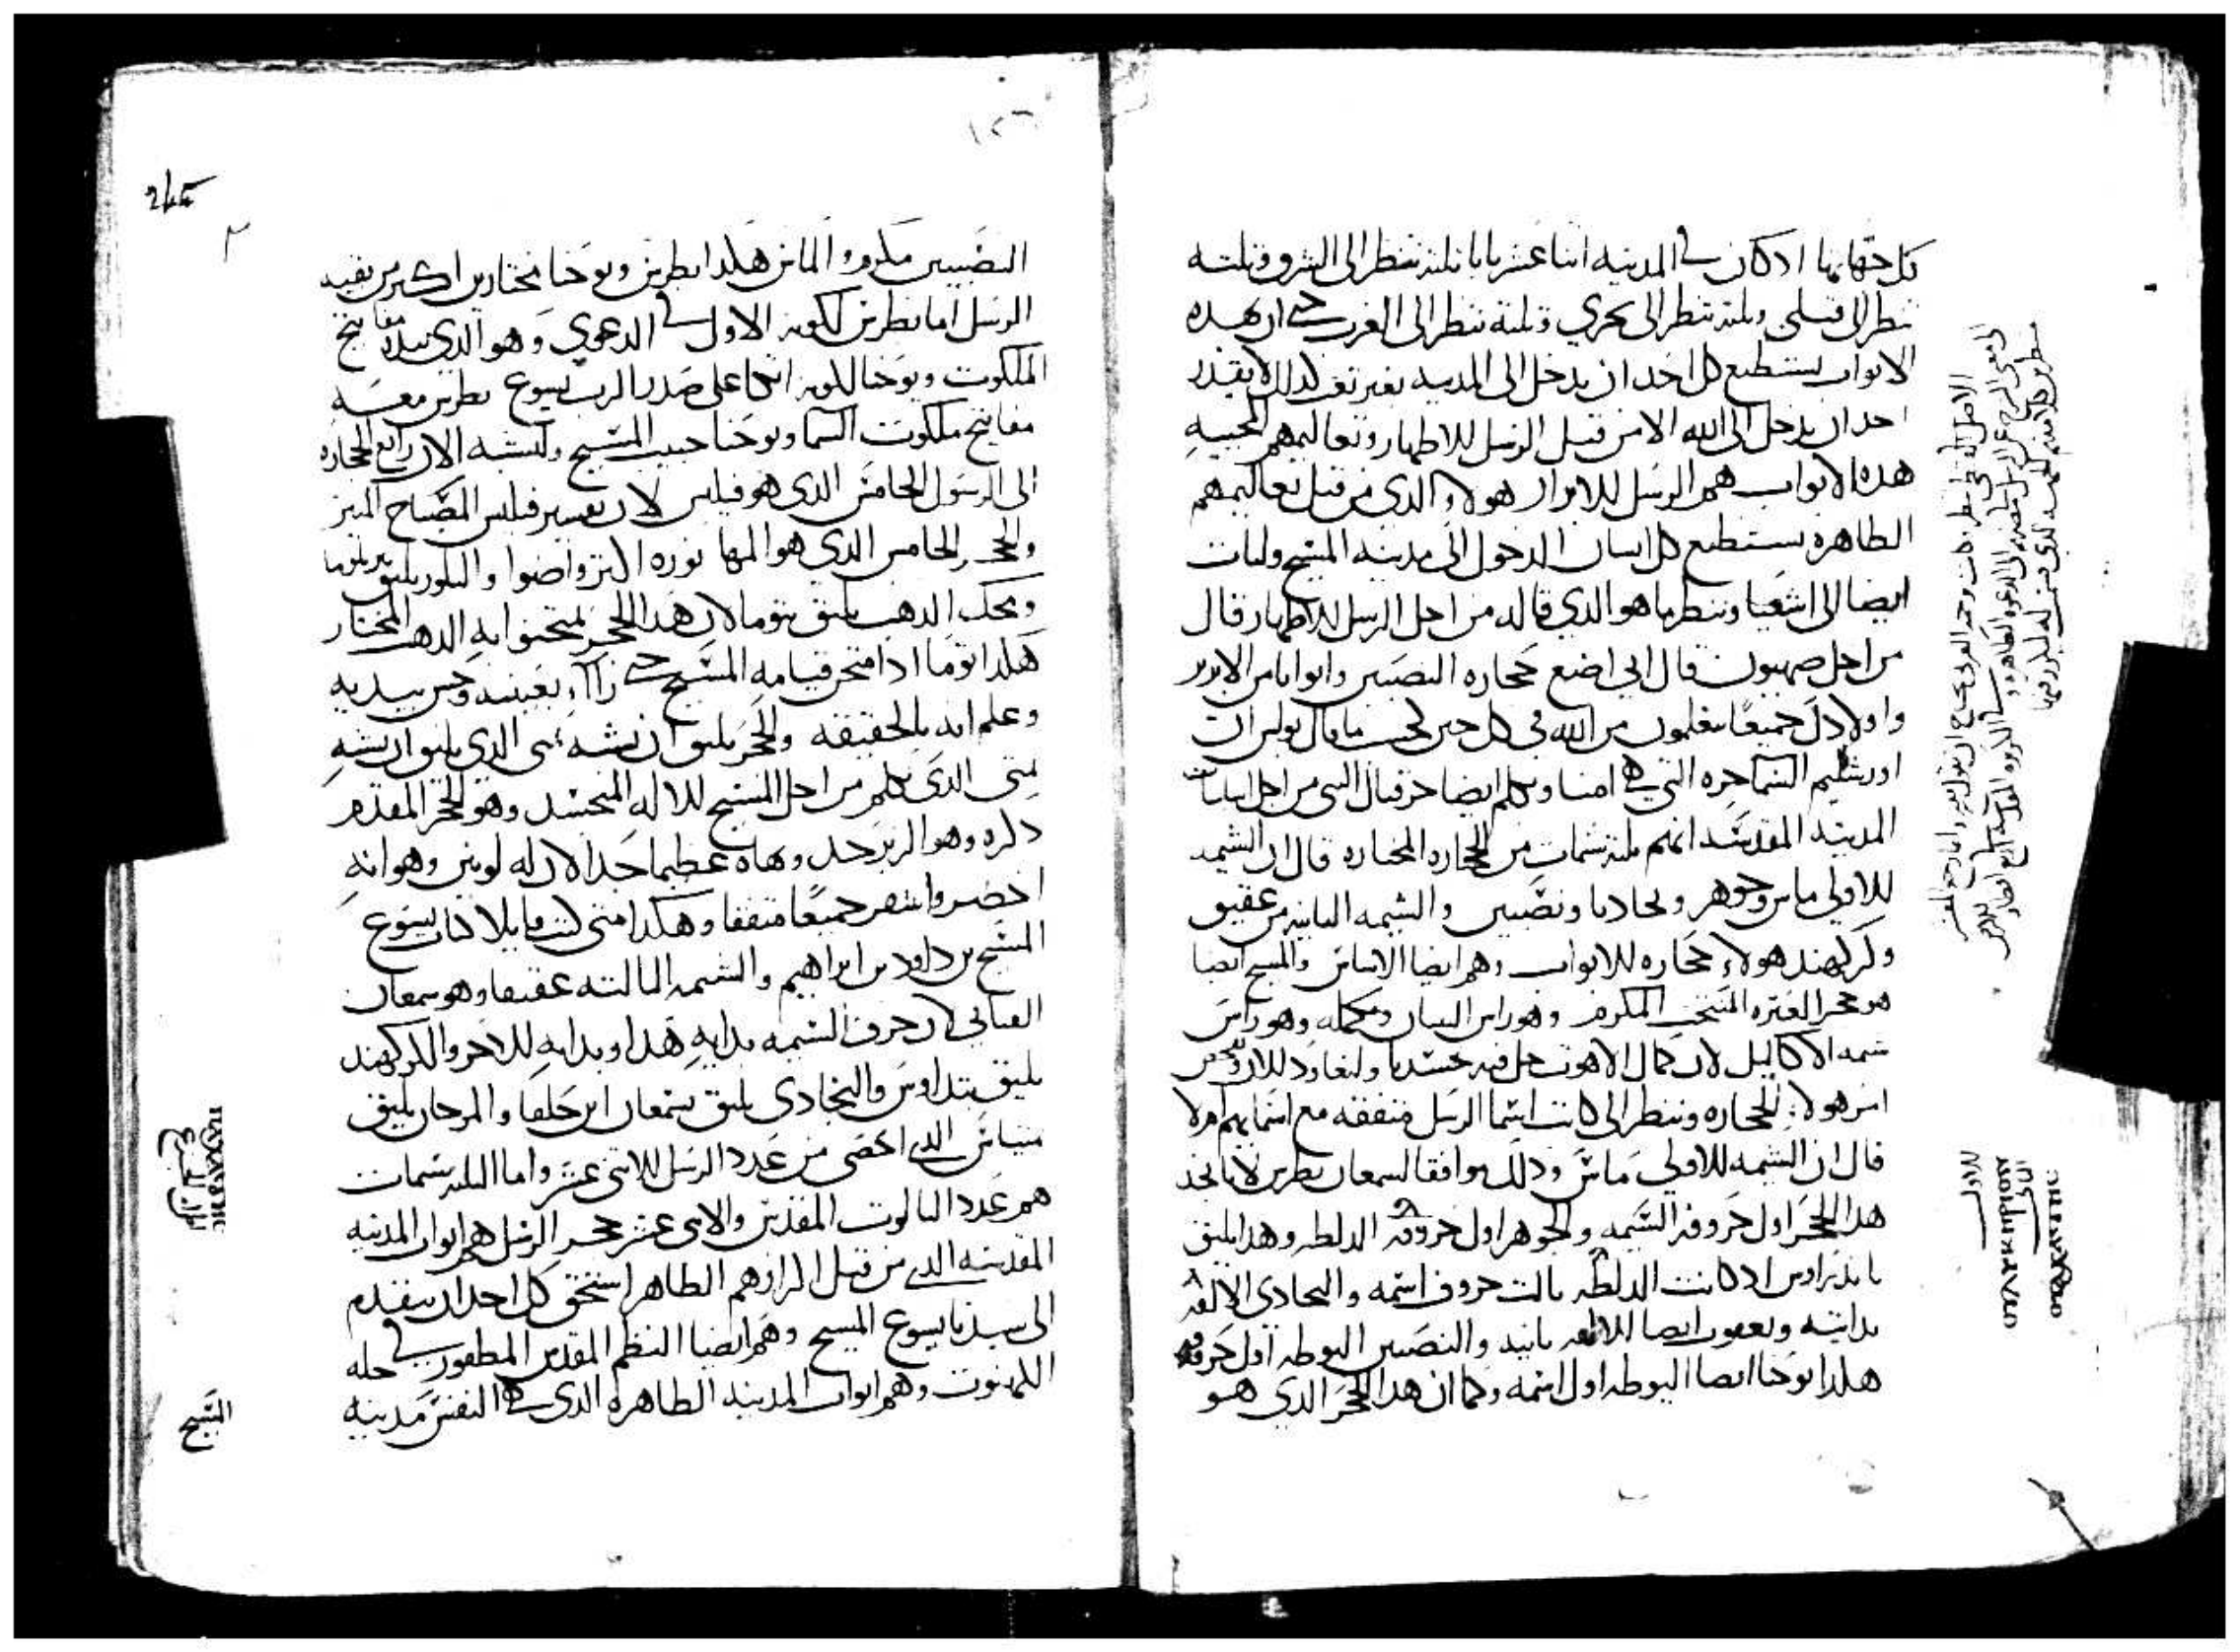 كل جهاتها اد كان في المدينه اثنا عشر بابا ثلثه تنظر الى الشرق وثلثه
تنظر الى قبلي وثلثه تنظر الى بحري وثلثة تنظر الى الغرب حتى ان بهده
الابواب يستطيع كل احد ان يدخل الى المدينه بغير تعب كدلك لا يقدر
احد ان يدخل الى الله الا من قبل الرسل الاطهار وتعاليمهم المحييه
هده الابواب هم الرسل الابرار هولاء الدى من قبل تعاليمهم
الطاهره يستطيع كل انسان الدخول الى مدينه المسيح ولنات
ايضا الى اشعيا وننظر ما هو الدي قاله من اجل الرسل الاطهار قال
من اجل صهيون قال اني اضع حجاره النصيبين وابوابا من
واولادك جميعا يتعلمون من الله في كل حين كحسب ما قال بولس ان
اورشليم السما حره التي هي امنا وتكلم ايضا حزقيال النبي من اجل
المدينه المقدسه انهم ثلثه شمات من الحجاره المختاره قال ان الشمه
الاولي ماس وجوهر و بحاديا ونصيبين والشمه الثانيه من عقيق
وكركهند هولاء حجاره الابواب وهم ايضا الاساس والمسيح ايضا
هو حجر العتره المنتخب المكرم وهو راس البنيان ومكمله وهو راس
شمه الاكاليل لان كمال اللاهوت حل فيه جسديا ولنعاود الان
امر هولاء الحجاره وننظر الى كانت اسما الرسل متفقه مع اسمايهم ام لا
قال ان الشمه الاولي ماس ودلك موافقا لسمعان بطرس لانا نجد
هدا الحجر اول حروف الشمه والجوهر اول حروفه الدلطه وهدا يليق
باندراوس اد كانت الدلطه ثالث حروف اسمه والبحادي الالفه
بدايته ويعقوب ايضا الالفه ثانيه والنصيبين اليوطه اول حروفه
هكدا يوحنا ايضا اليوطه اول اسمه وكما ان هدا الحجر الدي هو
الاول
245
النصيبين مكرم والماس هكدا بطرس ويوحنا مختارين اكتر من بقيه
الرسل اما بطرس لكونه الاول في الدعوي وهو الدي بيده مفاتيح
الملكوت ويوحنا لكونه اتكا على صدر الرب يسوع بطرس معه
مفاتيح ملكوت السما ويوحنا حبيب المسيح ولنشبه الان رابع الحجاره
الى الرسول الخامس الدى هو فيلبس لان تفسير فيلبس المصباح المنير
والحجر الخامس الدي هو المها نوره اكتر واضوا والبلور يليق ببرتلوما
ومحك الدهب يليق بتوما لان هدا الحجر يمتحنوا به الدهب المختار
هكدا توما ادا امتحن قيامه المسيح حتى راه بعينيه وجس بيديه
وعلم انه بالحقيقه والحجر يليق ان نشبه متى الدي يليق ان نشبه
متى الدى تكلم من اجل المسيح الاله المتجسد وهو الحجر المقدم
دكره وهو الزبرجد وبهاه عظيما جدا لان له لونين وهو انه
اخضر واشقر جميعا متفقا وهكدا متى كتب قايلا كتاب يسوع
المسيح بن داود بن ابراهيم والشمه الثالثه عقيقا وهو سمعان
القناني لان حرف الشمه بدايه هدا وبدايه الاخر والكركهند
يليق بتداوس والبجادى يليق بسمعان ابن حلفا والمرجان يليق
متياس الدى احصى من عدد الرسل الاثني عشر واما الثلثه شمات
هم عدد الثالوث المقدس والاثني عشر حجر الرسل هم ابواب المدينه
المقدسه الدى من قبل اندارهم الطاهر استحق كل احد ان يتقدم
الى سيدنا يسوع المسيح وهم ايضا النظم المقدس المظفور في حله
الكهنوت وهم ابواب المدينه الطاهره الدى هي النفس مدينه
المسيح